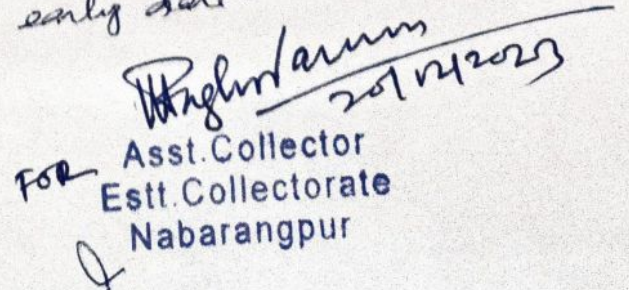 early
20/12/2023
FOR Asst.Collector
Estt.Collectorate
Nabarangpur